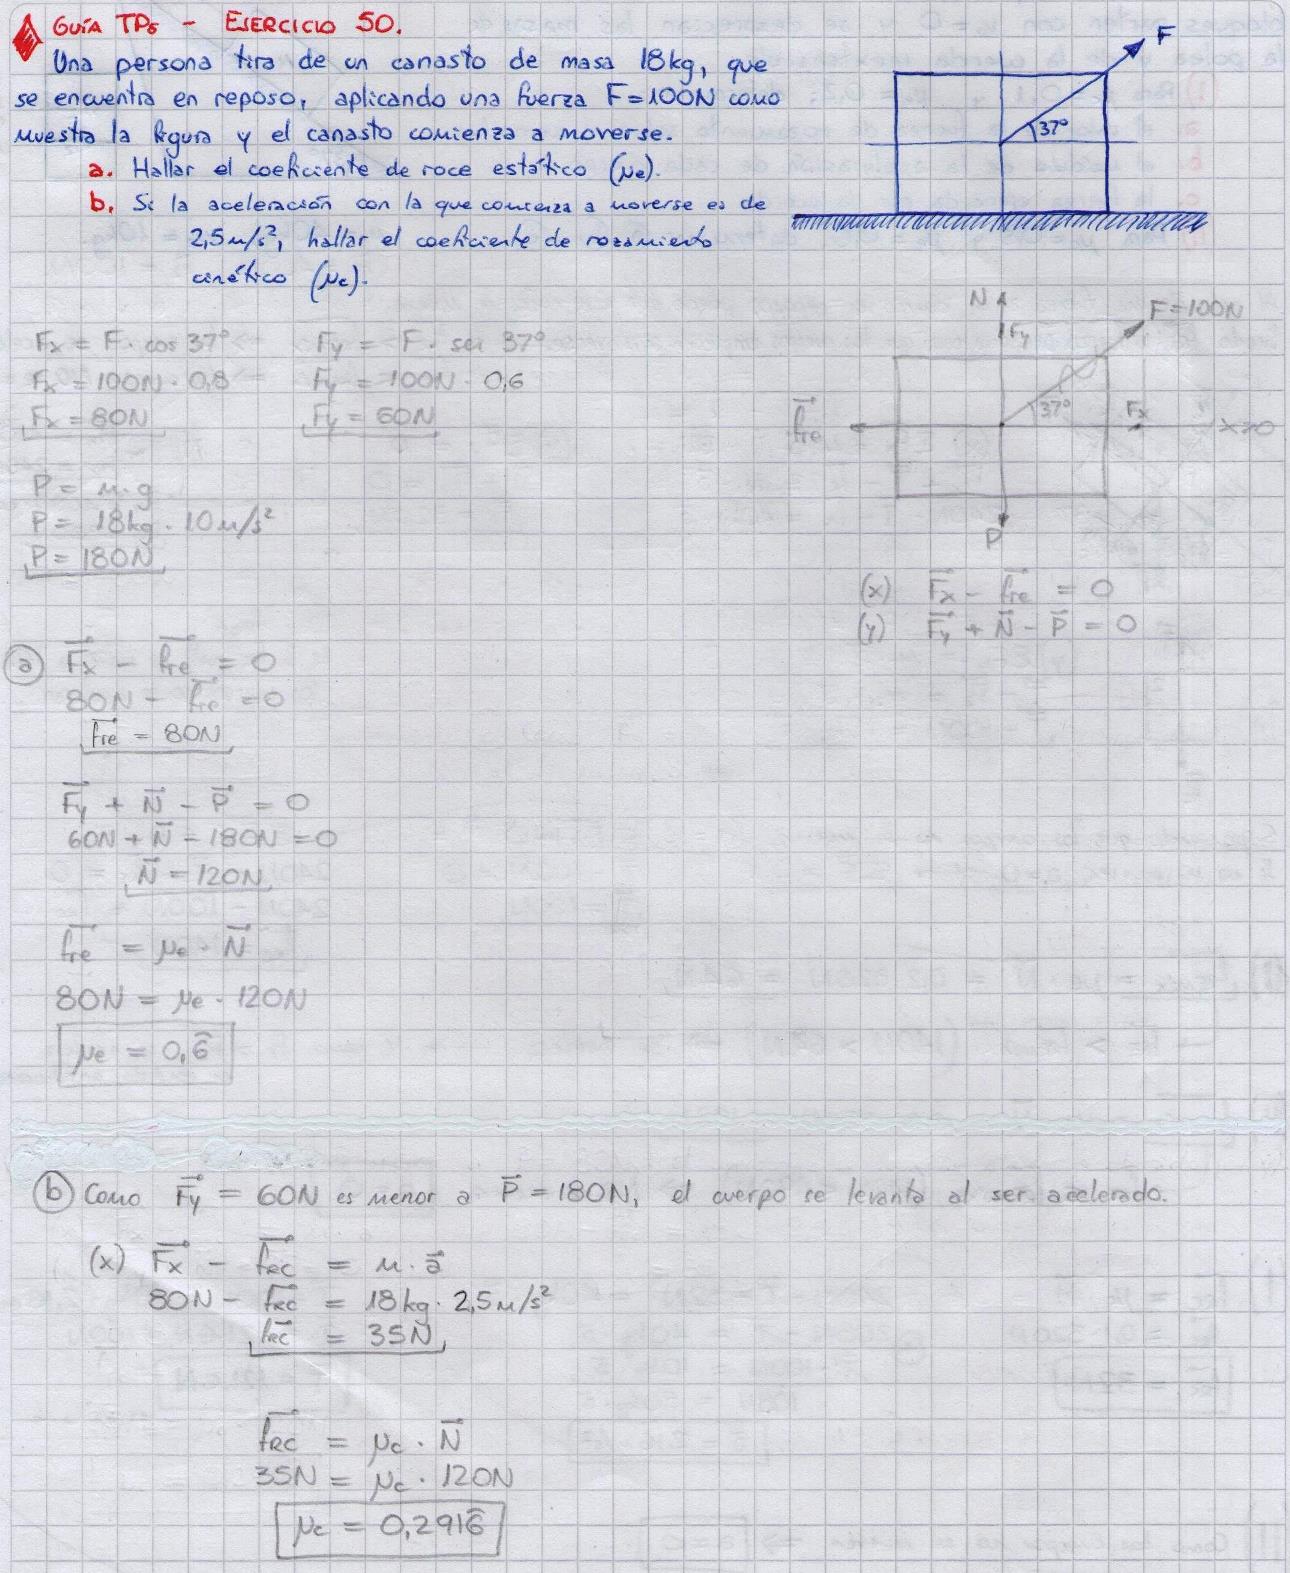 GUÍA TP5 - EJERCICIO 50.
Una persona tira de un canasto de masa 18kg, que
se encuentra en reposo, aplicando una fuerza F=100N como
muestra la figura y el canasto comienza a moverse.
a. Hallar el coeficiente de roce estático (μe).
b. Si la aceleración con la que comienza a moverse es de
2,5m/s², hallar el coeficiente de rozamiento
cinético (μc).
F
37°
Fx = F. cos 37°
Fx = 100N. 0,8
Fx = 80N
Fy = F. sen 37°
Fy = 100N. 0,6
Fy = 60N
P = m.g
P = 18kg. 10m/s²
P = 180N
N
Fy
F=100N
37°
Fx
fre
x>0
P
(x) Fx - fre = 0
(y) Fy + N - P = 0
a Fx - fre = 0
80N - fre = 0
fre = 80N
Fy + N - P = 0
60N + N - 180N = 0
N = 120N
fre = μe . N
80N = μe . 120N
μe = 0,6̂
b Como Fy = 60N es menor a P = 180N, el cuerpo se levanta al ser acelerado.
(x) Fx - frc = m.a
80N - frc = 18kg. 2,5m/s²
frc = 35N
frc = μc . N
35N = μc . 120N
μc = 0,2916̂